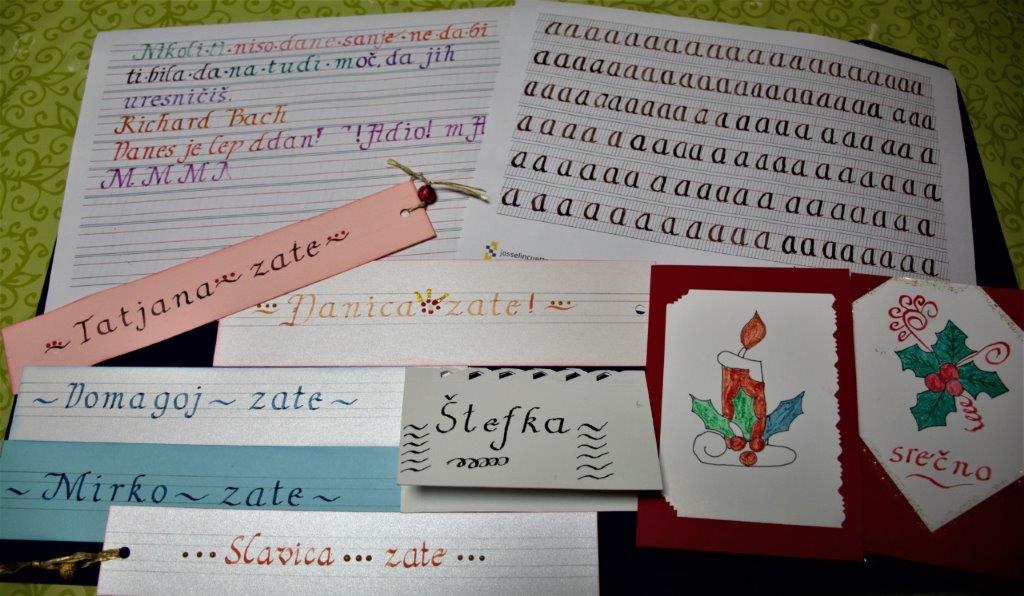 Nikoli·ti·niso·dane·sanje·ne·da·bi
ti·bila·da·na·tudi·moč, da jih
uresničiš.
Richard Bach
Danes je lep ddan! !Adio! mA
M M M M
a a a a a a a a a a a a a a a a a a a
a a a a a a a a a a a a a a a a a a a
a a a a a a a a a a a a a a a a a a
a a a a a a a a a a a a a a a a a
a a a a a a a a a a a a a a a a a
a a a a a a a a a a a a a a a a a
Tatjana~zate~
~Danica zate!~
~Domagoj~zate~
~Mirko~zate~
...Slavica...zate...
Štefka
srečno